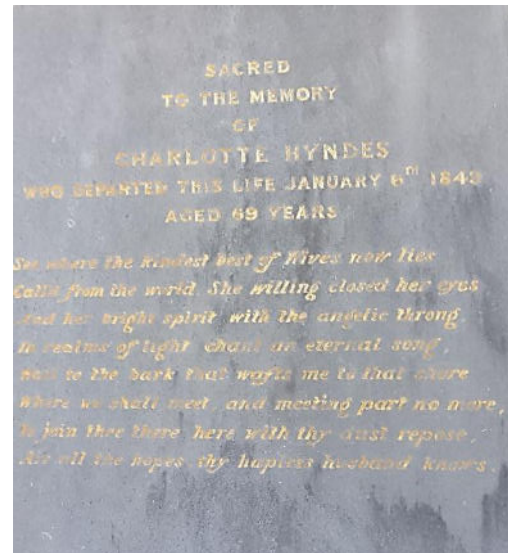 SACRED
TO THE MEMORY
OF
CHARLOTTE HYNDES
WHO DEPARTED THIS LIFE JANUARY 6TH 1843
AGED 69 YEARS
See where the kindest best of Wives now lies
Calm from the world. She willing closed her eyes
And her bright spirit, with the angelic throng,
In realms of light chant an eternal song,
Hail to the bark that wafts me to that shore
Where we shall meet, and meeting part no more,
To join thee there, here with thy dust repose,
Are all the hopes thy hapless husband knows.